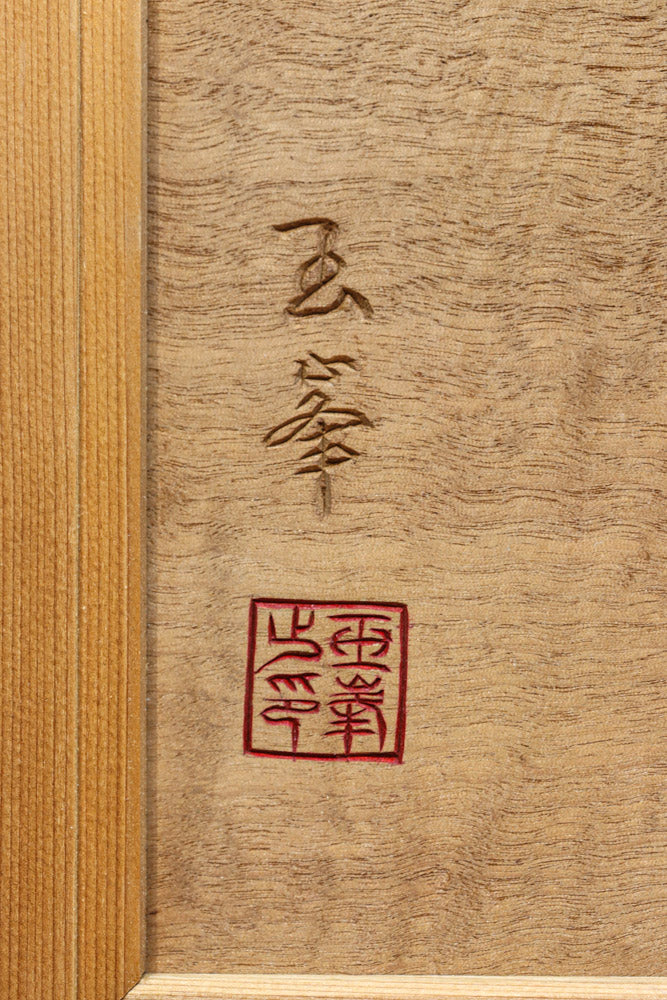 玉峯
玉峯
之印